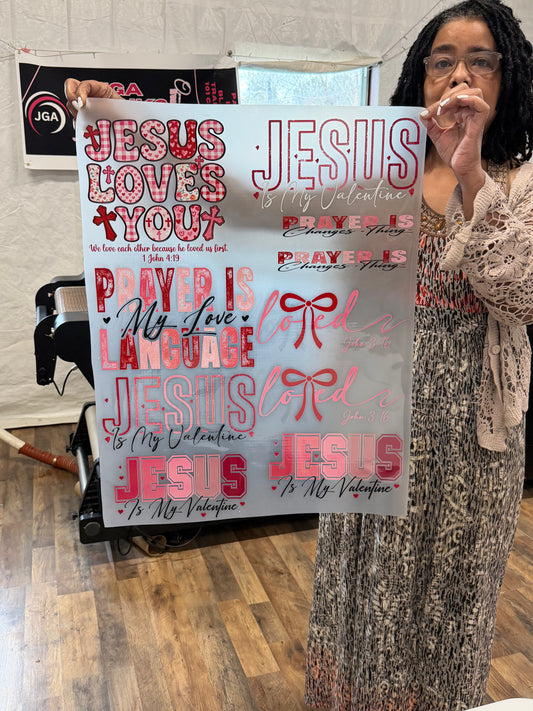 JGA
JGA
JESUS
LOVES
YOU
We love each other because he loved us first.
1 John 4:19
JESUS
Is My Valentine
PRAYER IS
Changes Thing
PRAYER IS
Changes Thing
PRAYER IS
My Love
LANGUAGE
loved
John 3:16
loved
John 3:16
JESUS
Is My Valentine
JESUS
Is My Valentine
JESUS
Is My Valentine